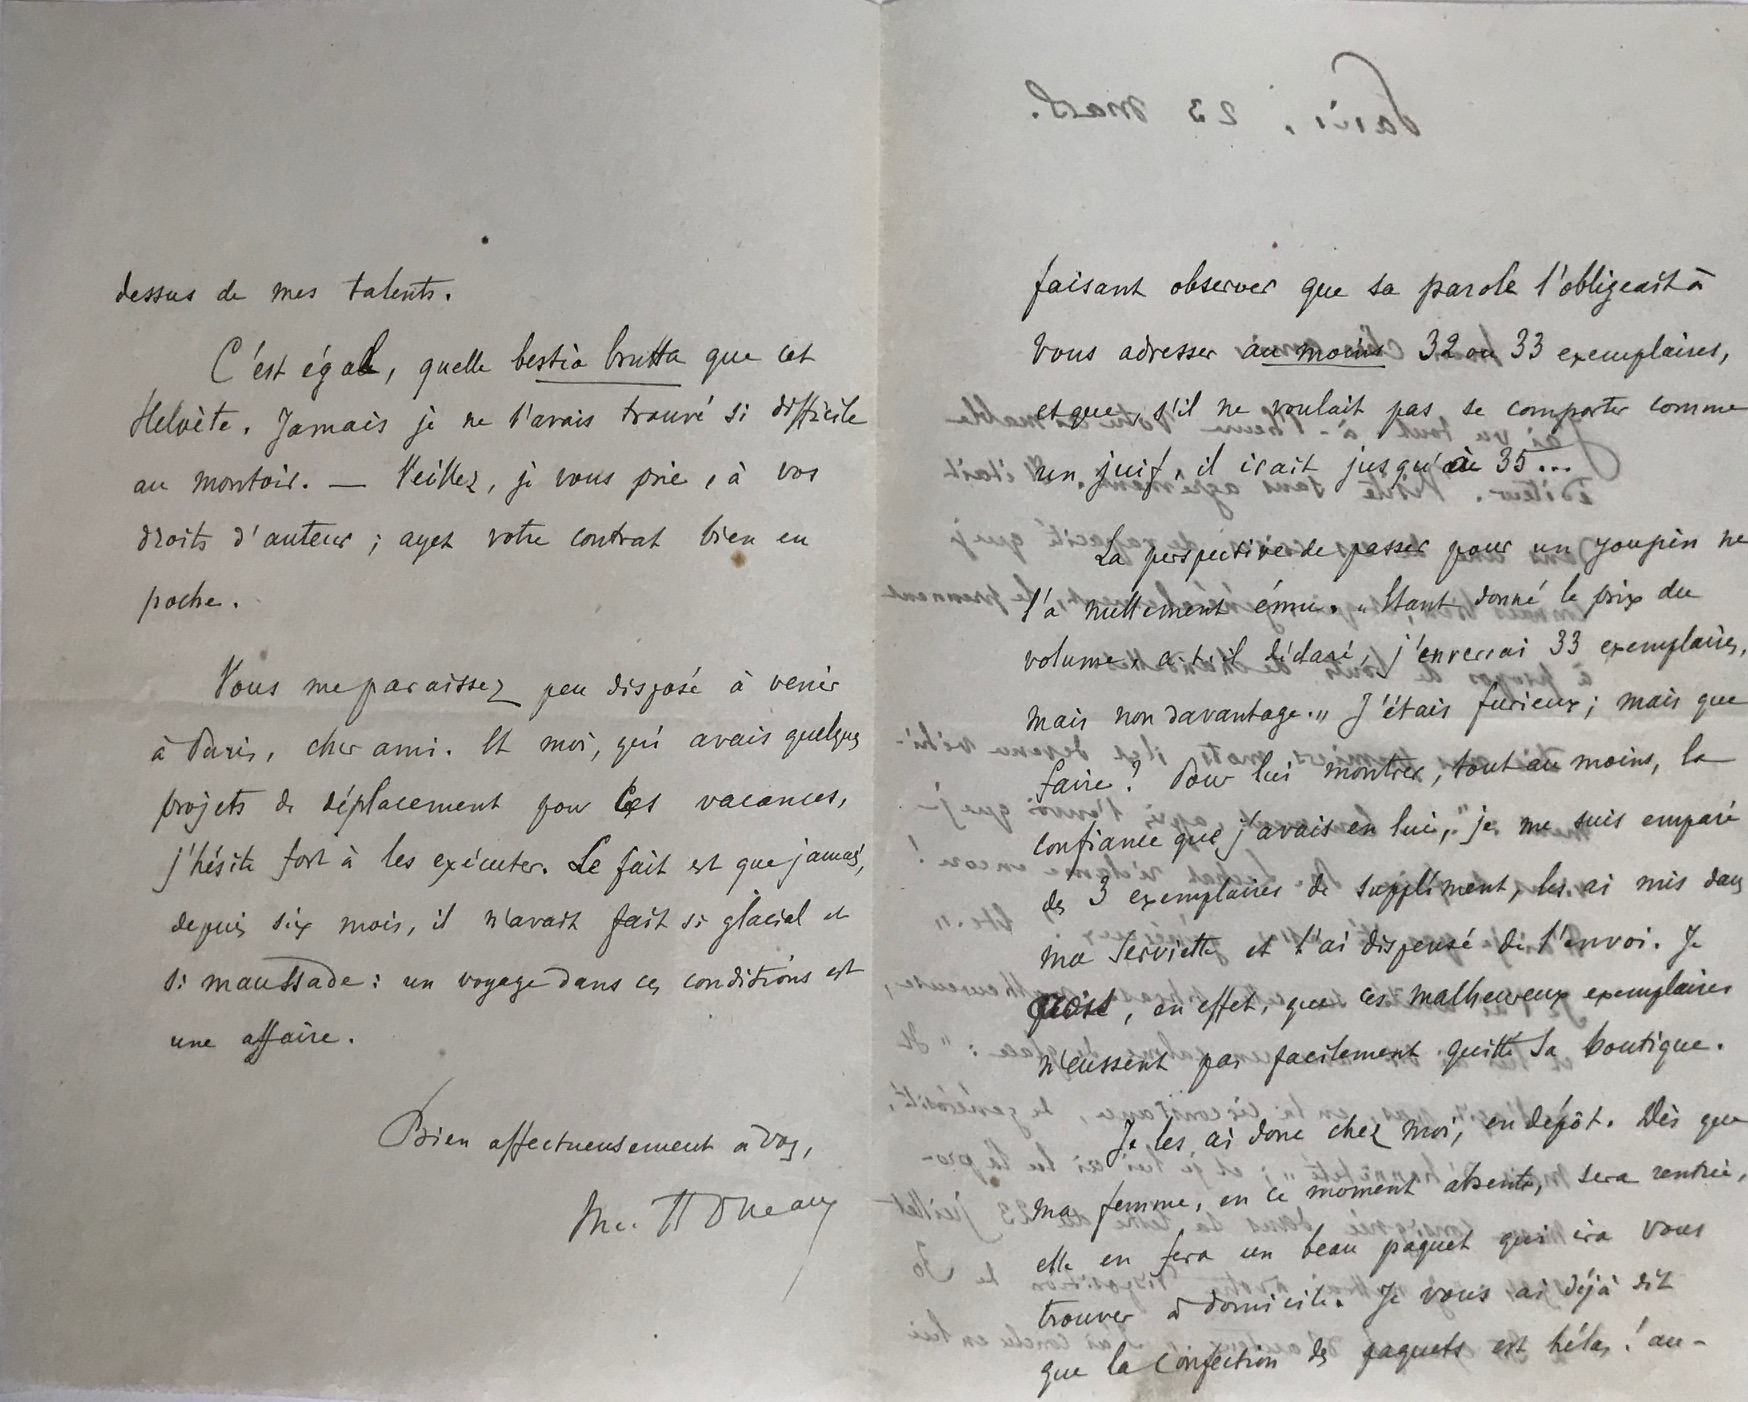 faisant observer que sa parole l'obligeait à
vous adresser au moins 32 ou 33 exemplaires,
et que, s'il ne voulait pas se comporter comme
un juif, il irait jusqu'à 35...
La perspective de passer pour un youpin ne
l'a nullement ému. "Étant donné le prix du
volume, a-t-il déclaré, j'enverrai 33 exemplaires,
mais non davantage." J'étais furieux; mais que
faire? Pour lui montrer, tout au moins, la
confiance que j'avais en lui, je me suis emparé
des 3 exemplaires de supplément, les ai mis dans
ma serviette et l'ai dispensé de l'envoi. Je
crois, en effet, que ces malheureux exemplaires
n'eussent pas facilement quitté sa boutique.
Je les ai donc chez moi, en dépôt. Dès que
ma femme, en ce moment absente, sera rentrée,
elle en fera un beau paquet qui ira vous
trouver à domicile. Je vous ai déjà dit
que la confection des paquets est hélas! au-
dessus de mes talents.
C'est égal, quelle bestia brutta que cet
Helvète. Jamais je ne l'avais trouvé si difficile
au montoir. — Veillez, je vous prie, à vos
droits d'auteur; ayez votre contrat bien en
poche.
Vous me paraissez peu disposé à venir
à Paris, cher ami. Et moi, qui avais quelques
projets de déplacement pour les vacances,
j'hésite fort à les exécuter. Le fait est que jamais,
depuis six mois, il n'avait fait si glacial et
si maussade: un voyage dans ces conditions est
une affaire.
Bien affectueusement à vous,
Paris, 23 mars.